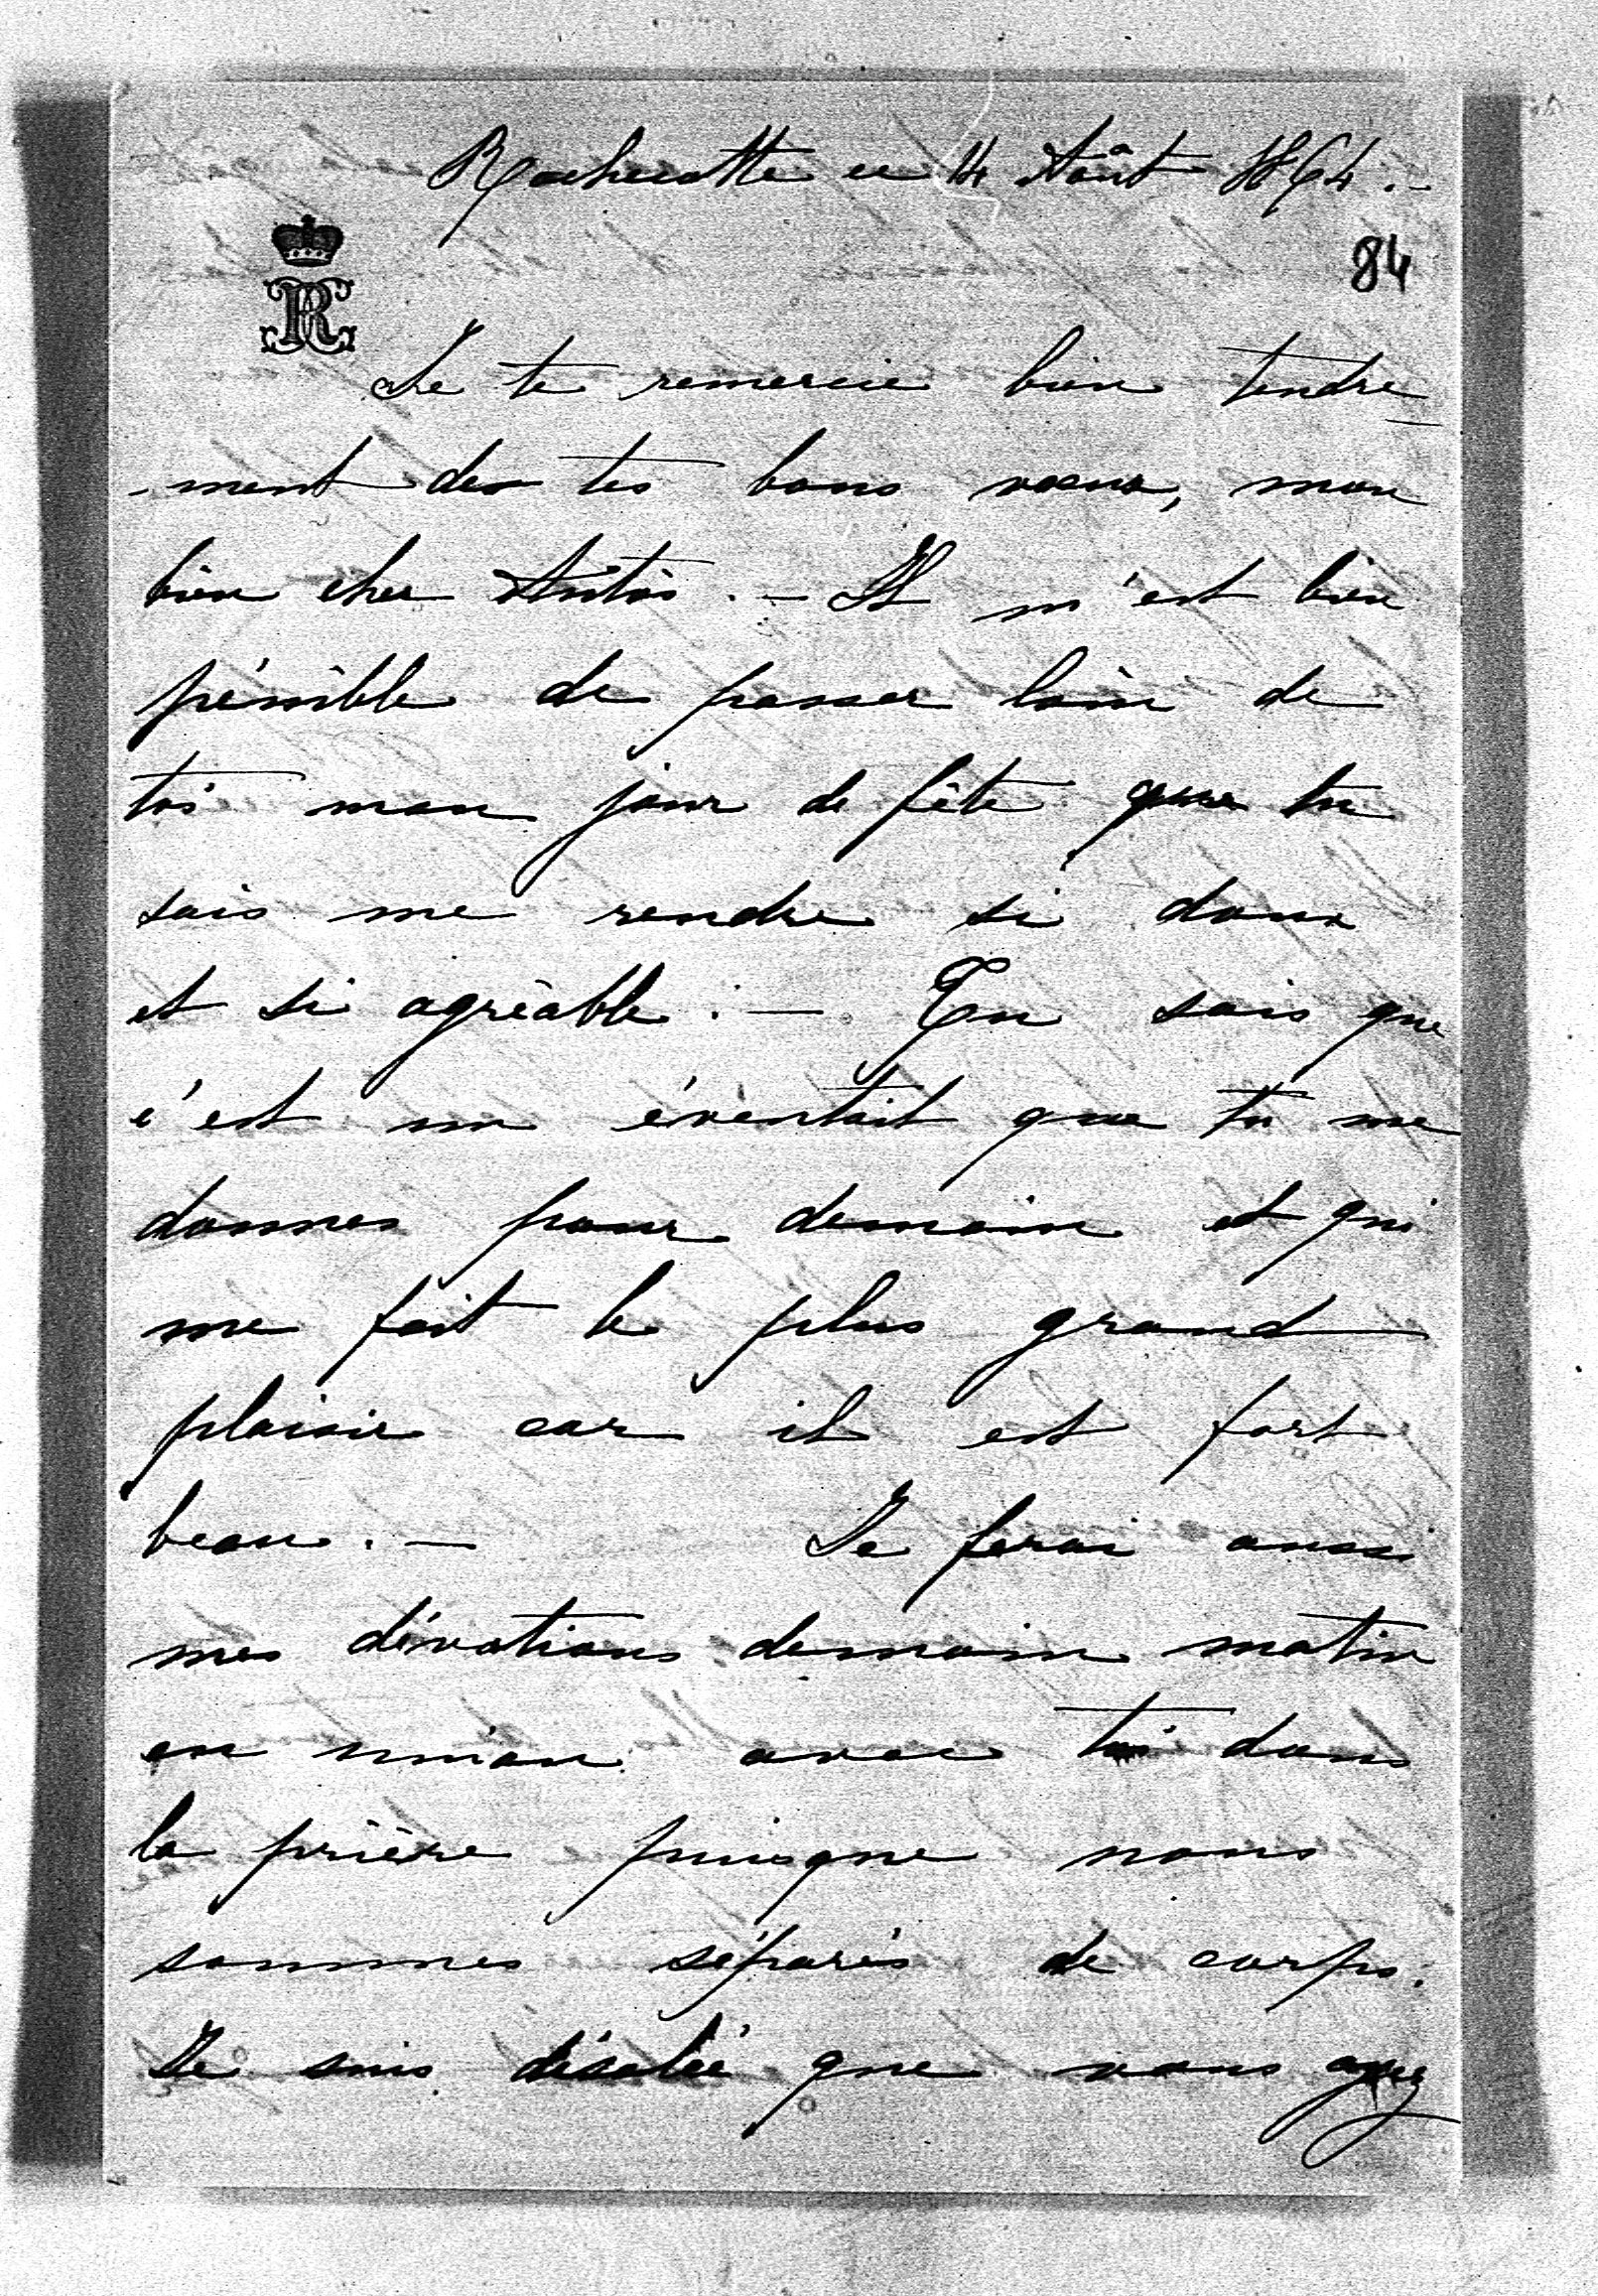 Rochecotte ce 14 Août 1864.-
84
Je te remercie bien tendre
-ment de tes bons voeux, mon
bien cher Antoin.- Il m'est bien
pénible de passer loin de
toi mon jour de fête que tu
sais me rendre si doux
et si agréable.- Tu sais que
c'est un éventail que tu me
donnes pour demain et qui
me fait le plus grand
plaisir car il est fort
beau.- Je ferai aussi
mes dévotions demain matin
en union avec toi dans
la prière puisque nous
sommes séparés de corps.
Je suis désolée que vous ayez